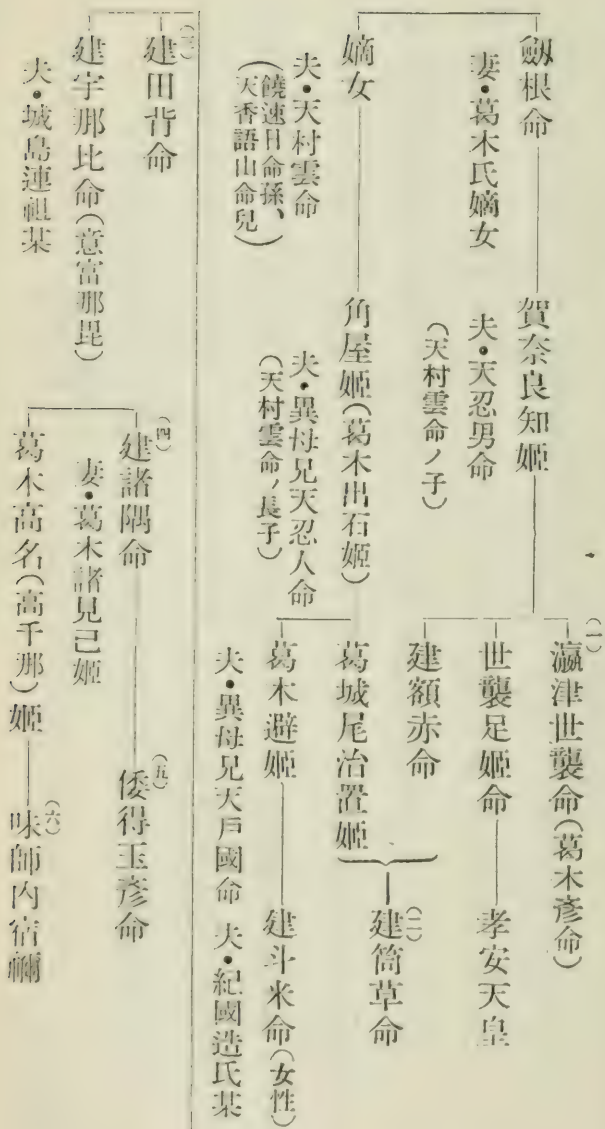 劔根命
妻・葛木氏嫡女
賀奈良知姫
夫・天忍男命
(天村雲命ノ子)
(一)
瀛津世襲命(葛木彦命)
世襲足姫命
孝安天皇
建額赤命
(二)
建筒草命
葛城尾治置姫
嫡女
夫・天村雲命
(饒速日命孫、
天香語山命兒)
角屋姫(葛木出石姫)
夫・異母兄天忍人命
(天村雲命ノ長子)
葛木避姫
夫・異母兄天戸國命
建斗米命(女性)
夫・紀國造氏某
(三)
建田背命
建宇那比命(意富那毘)
夫・城島連祖某
(四)
建諸隅命
妻・葛木諸見己姫
(五)
倭得玉彦命
葛木高名(高千那)姫
(六)
味師内宿禰